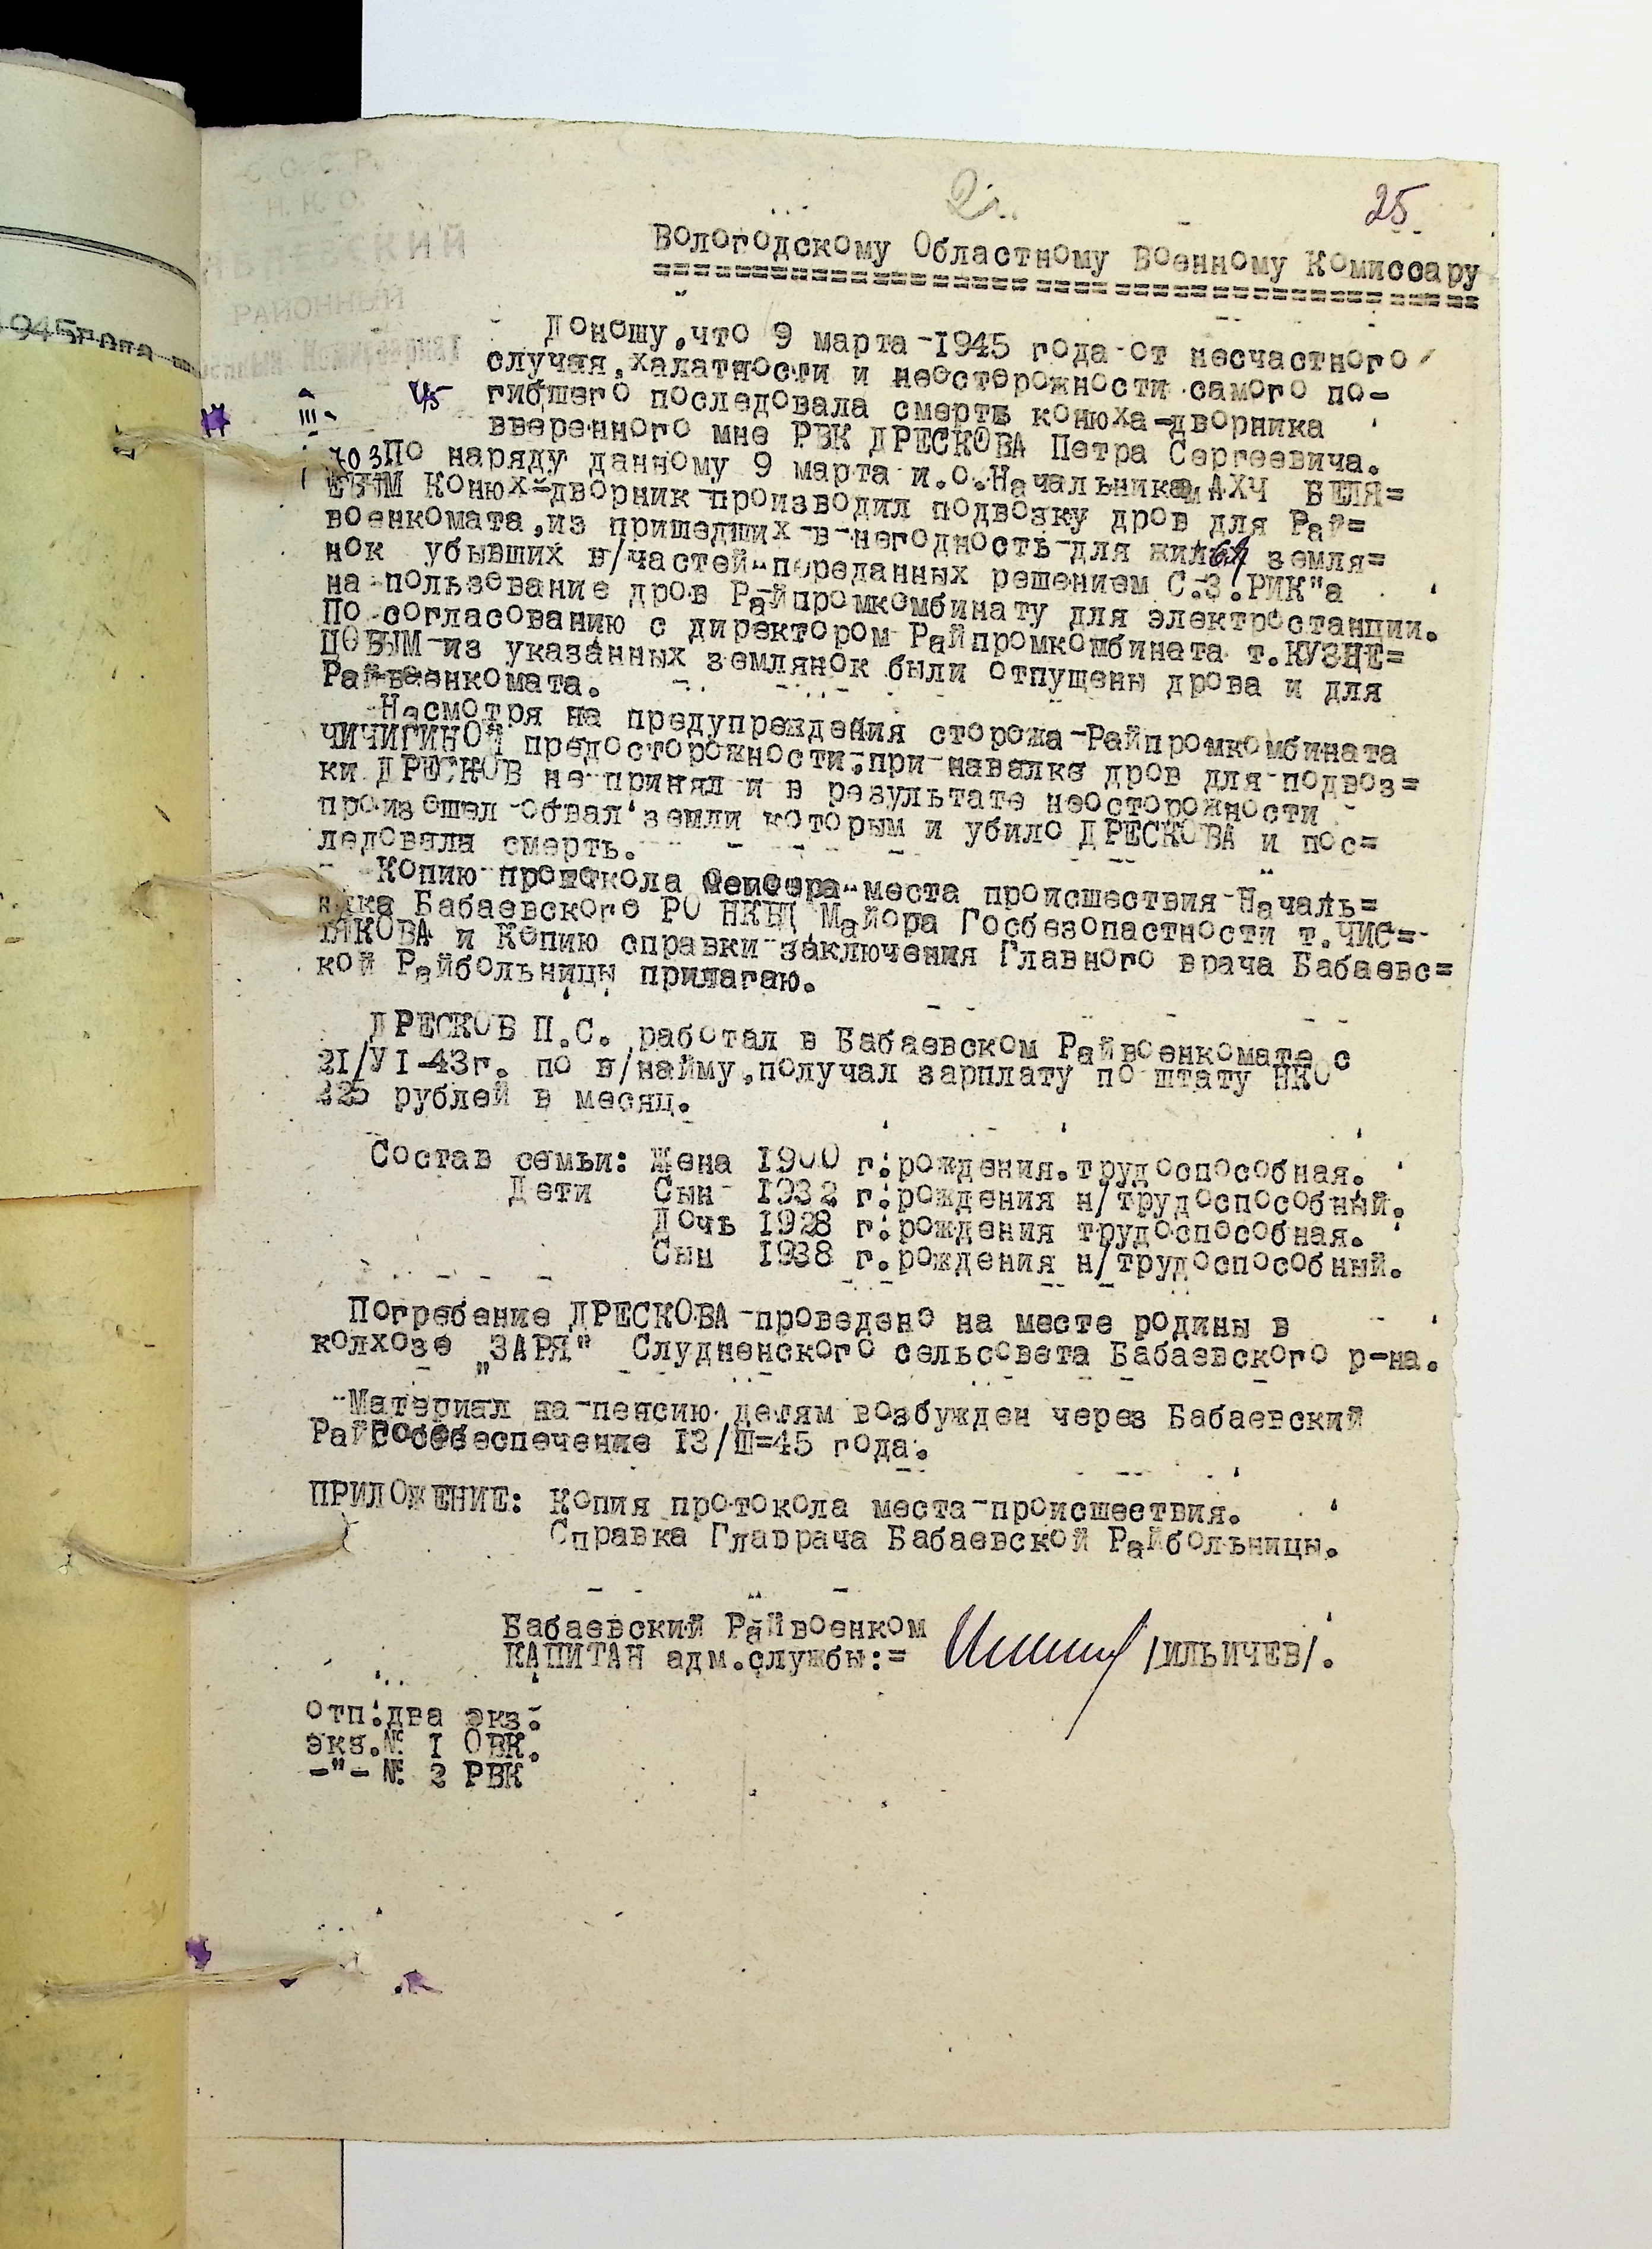 С.С.С.Р.
Н.К.О.
РАЙОННЫЙ
2.
25
Вологодскому Областному Военному Комиссару
Доношу,что 9 марта 1945 года от несчастного
случая,халатности и неосторожности самого по-
гибшего последовала смерть конюха-дворника
вверенного мне РВК ДРЕСКОВА Петра Сергеевича.
По наряду данному 9 марта и.о.Начальникам АХЧ БЕЛЯ=
ЕВЫМ Конюх-дворник производил подвозку дров для Рай=
военкомата,из пришедших в негодность для жилья земля=
нок убывших в/частей переданных решением С.З.РИК"а
на пользование дров Райпромкомбинату для электростанции.
По согласованию с директором Райпромкомбината т.КУЗНЕ=
ЦОВЫМ из указанных землянок были отпущены дрова и для
Райвоенкомата.
Несмотря на предупреждения сторожа Райпромкомбината
ЧИЧИГИНОЙ предосторожности, при навалке дров для подвоз=
ки ДРЕСКОВ не принял и в результате неосторожности
произошел обвал земли которым и убило ДРЕСКОВА и пос=
ледовала смерть.
Копию протокола места происшествия Началь=
ника Бабаевского РО НКВД Майора Госбезопастности т.ЧИС=
ТЯКОВА и Копию справки заключения Главного врача Бабаевс=
кой Райбольницы прилагаю.
ДРЕСКОВ П.С. работал в Бабаевском Райвоенкомате с
21/УI-43г. по в/найму,получал зарплату по штату НКО
225 рублей в месяц.
Состав семьи: Жена 1900 г.рождения.трудоспособная.
Дети Сын 1932 г.рождения н/трудоспособный.
Дочь 1928 г.рождения трудоспособная.
Сын 1938 г.рождения н/трудоспособный.
Погребение ДРЕСКОВА проведено на месте родины в
колхозе „ЗАРЯ" Слудненского сельсовета Бабаевского р-на.
Материал на пенсию детям возбужден через Бабаевский
Райсобеспечение 13/III=45 года.
ПРИЛОЖЕНИЕ: Копия протокола места происшествия.
Справка Главрача Бабаевской Райбольницы.
Бабаевский Райвоенком
КАПИТАН адм.службы:= /ИЛЬИЧЕВ/.
отп.два экз.
экз.№ 1 ОВК.
-"- № 2 РВК